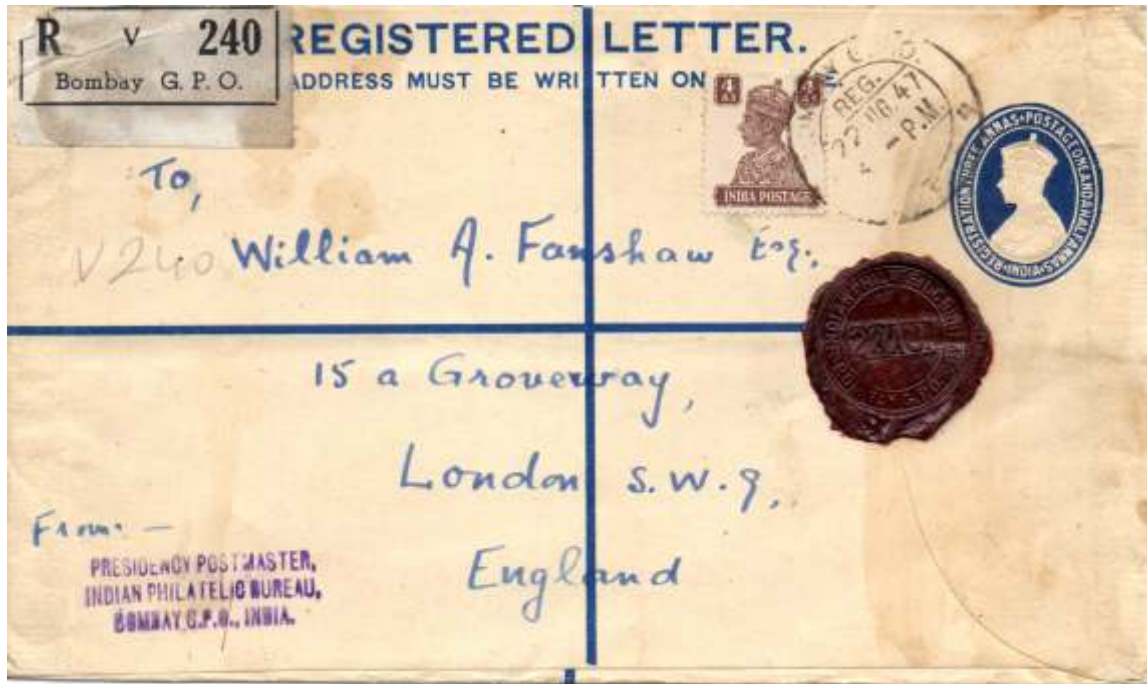 R V 240
Bombay G. P. O.
REGISTERED LETTER.
ADDRESS MUST BE WRITTEN ON
4 As
INDIA POSTAGE
REG.
22 AUG 47
4 - P.M.
REGISTRATION THREE ANNAS • POSTAGE ONE AND A HALF ANNAS • INDIA •
To,
V240
William A. Fanshaw Esq.,
15 a Groveway,
London S.W.9,
England
From: —
PRESIDENCY POSTMASTER,
INDIAN PHILATELIC BUREAU,
BOMBAY G.P.O., INDIA.